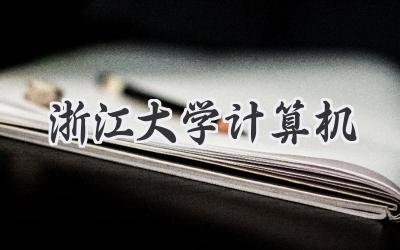 浙江大学计算机